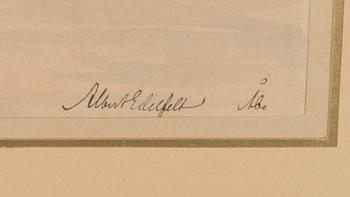 Albert Edelfelt Åbo